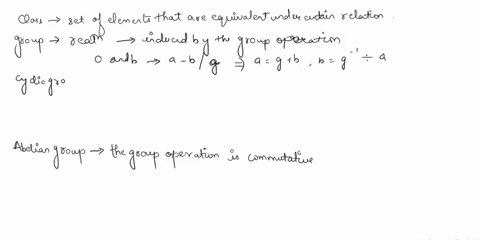 Class → set of elements that are equivalent under certain relation.
group → → induced by the group operation
0 and b → a - b / g ⇒ a = g + b , b = g⁻¹ ÷ a
Cyclic gro
Abelian group → the group operation is commutative